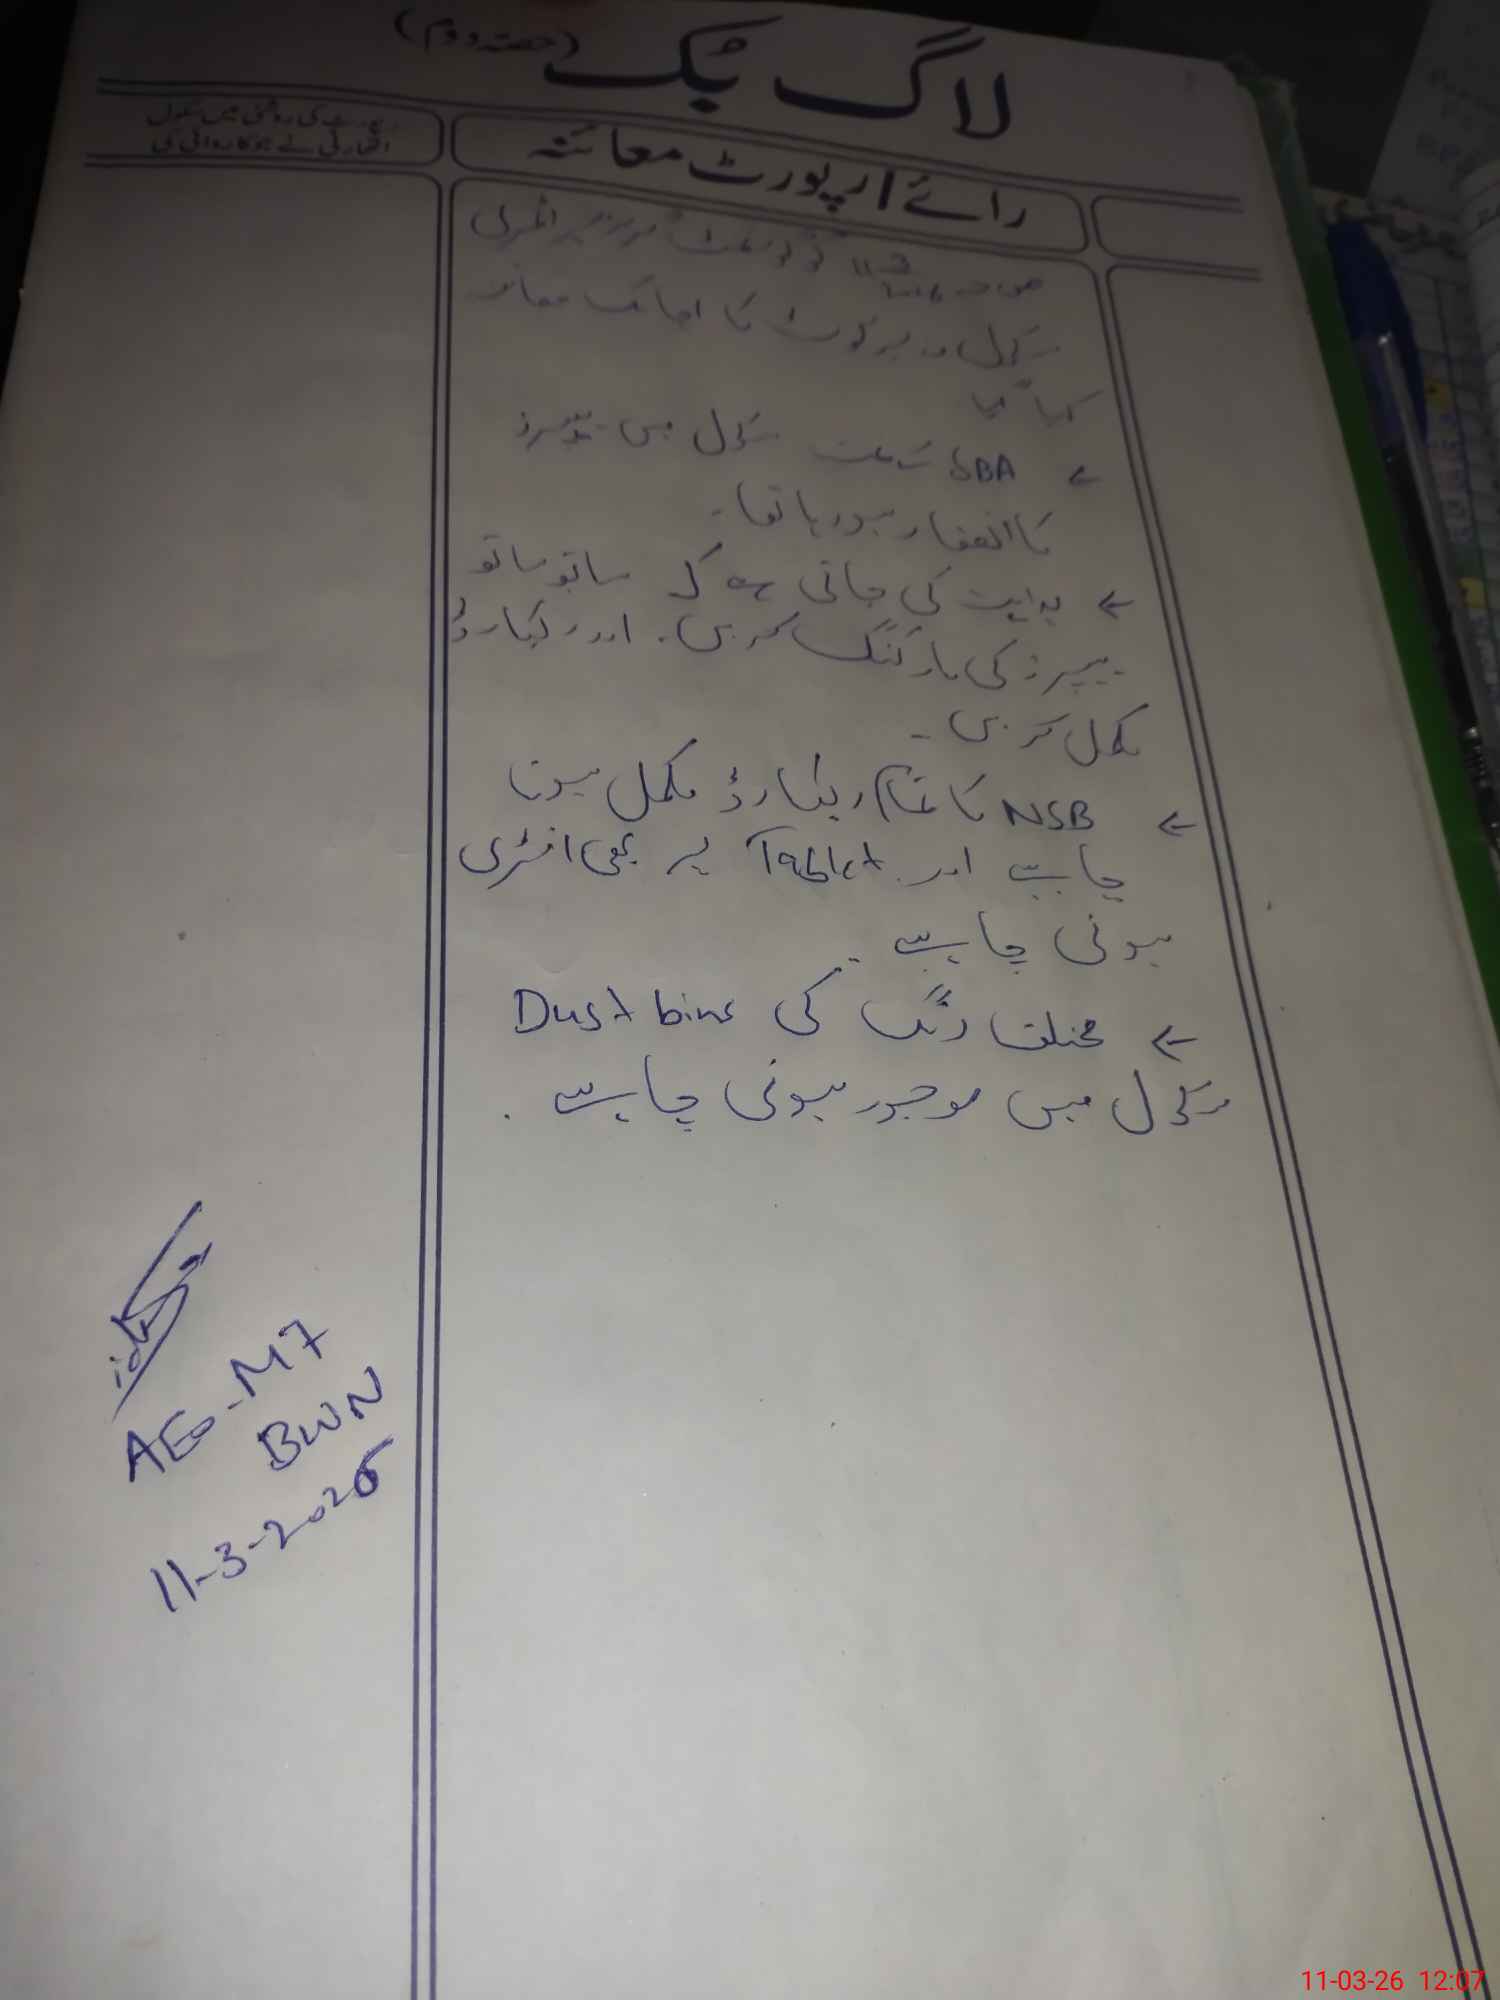 لاگ بک (حصہ دوم)
رائے / رپورٹ معائنہ
رپورٹ کی روشنی میں سکول
اتھارٹی نے جو کاروائی کی
مورخہ 11/3/2026 کو گورنمنٹ
سکول کا اچانک معائنہ
کیا گیا
← SBA کے تحت سکول میں پیپرز
کا انعقاد ہو رہا تھا۔
← ہدایت کی جاتی ہے کہ ساتھ ساتھ
پیپرز کی مارکنگ کریں۔ اور ریکارڈ
مکمل کریں۔
← NSB کا تمام ریکارڈ مکمل ہونا
چاہیے اور Tablet پر بھی انٹری
ہونی چاہیے۔
← مختلف رنگ کی Dust bins
سکول میں موجود ہونی چاہیے۔
AEO-M7
BWN
11-3-2026
11-03-26 12:07